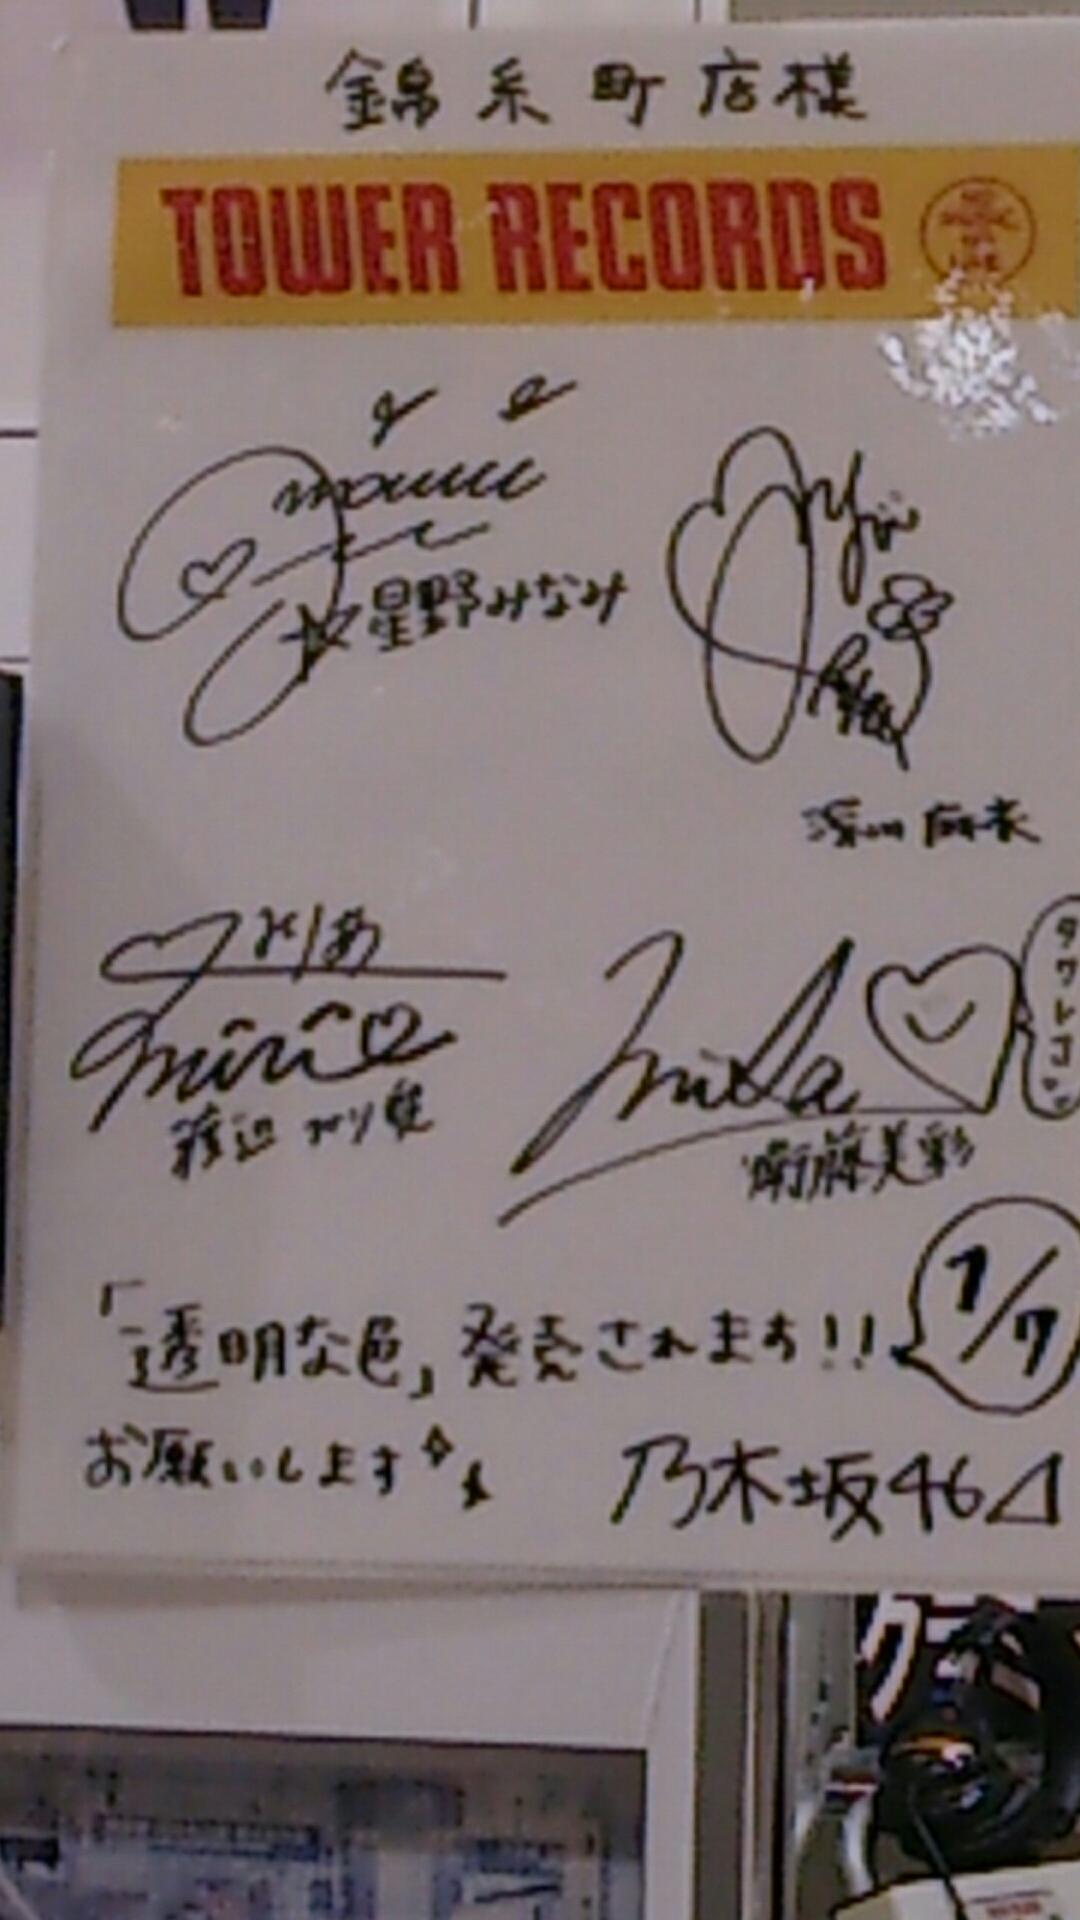 錦糸町店様
TOWER RECORDS
星野みなみ
深川麻衣
みりあ
渡辺みり愛
misa
タワレコ
衛藤美彩
「透明な色」発売されます!!
1/7
お願いします
乃木坂46